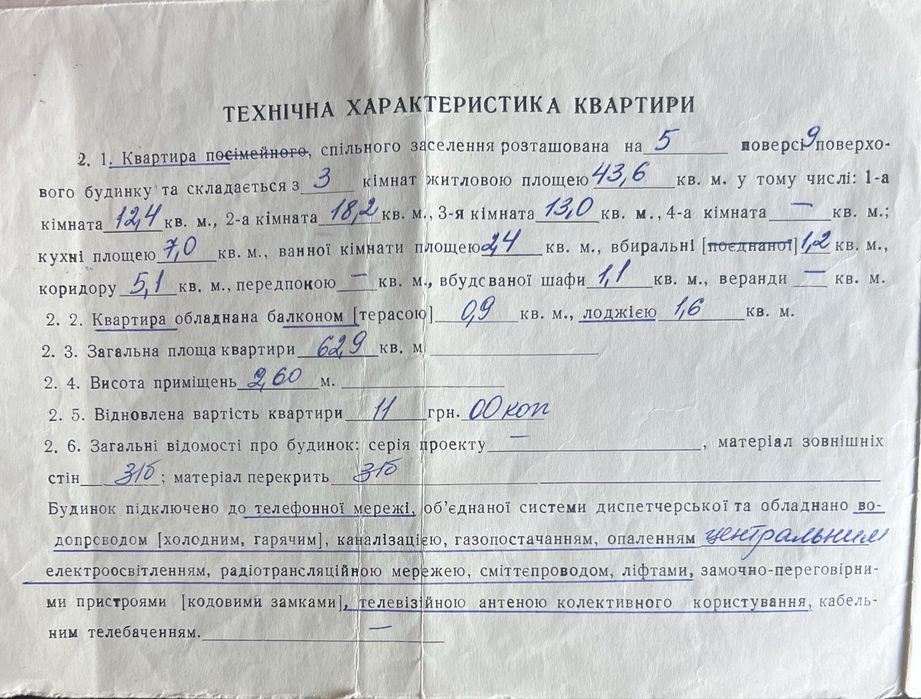 ТЕХНІЧНА ХАРАКТЕРИСТИКА КВАРТИРИ
2. 1. Квартира посімейного, спільного заселення розташована на 5 поверсі 9 поверхо-
вого будинку та складається з 3 кімнат житловою площею 43,6 кв. м. у тому числі: 1-а
кімната 12,4 кв. м., 2-а кімната 18,2 кв. м., 3-я кімната 13,0 кв. м., 4-а кімната — кв. м.;
кухні площею 7,0 кв. м., ванної кімнати площею 2,4 кв. м., вбиральні [поєднаної] 1,2 кв. м.,
коридору 5,1 кв. м., передпокою — кв. м., вбудсваної шафи 1,1 кв. м., веранди — кв. м.
2. 2. Квартира обладнана балконом [терасою] 0,9 кв. м., лоджією 1,6 кв. м.
2. 3. Загальна площа квартири 62,9 кв. м
2. 4. Висота приміщень 2,60 м.
2. 5. Відновлена вартість квартири 11 грн. 00 коп
2. 6. Загальні відомості про будинок: серія проекту —, матеріал зовнішніх
стін з/б; матеріал перекрить з/б
Будинок підключено до телефонної мережі, об'єднаної системи диспетчерської та обладнано во-
допрсводом [холодним, гарячим], каналізацією, газопостачанням, опаленням центральним
електроосвітленням, радіотрансляційною мережею, сміттєпроводом, ліфтами, замочно-переговірни-
ми пристроями [кодовими замками], телевізійною антеною колективного користування, кабель-
ним телебаченням. —